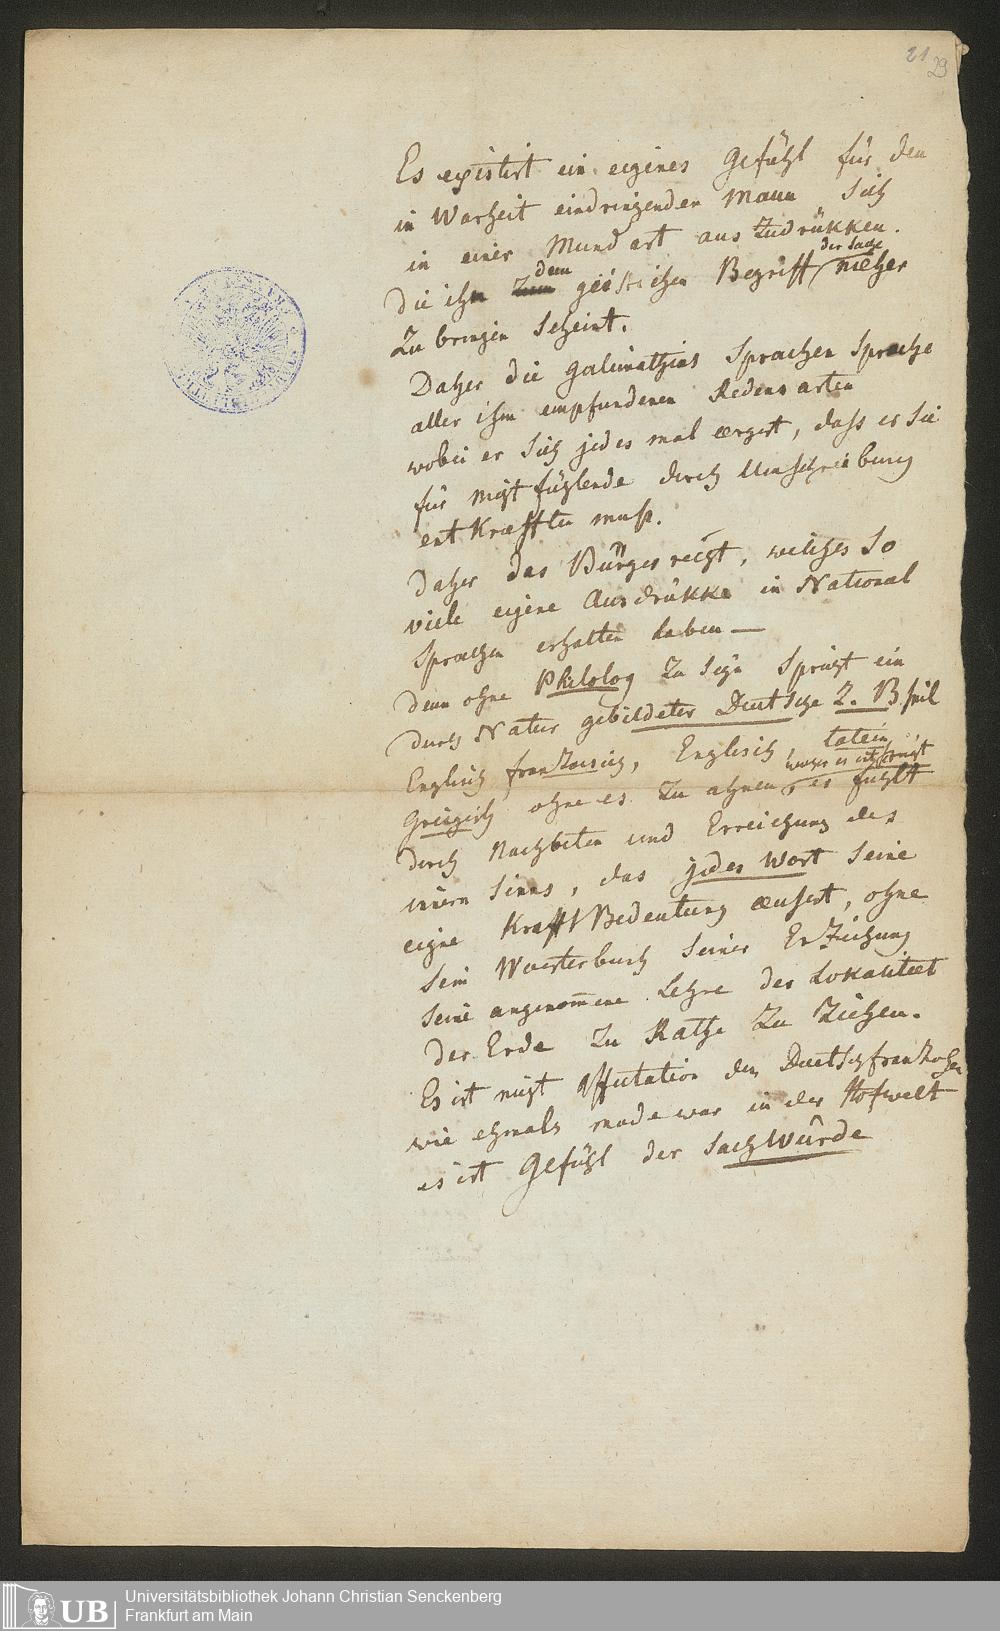 21
29
Es existirt ein eigenes Gefühl für den
in Warheit eindringenden Mann sich
in einer Mundart aus Zudrükken.
der Sache
dem
die ihn zum geistischen Begriff näher
Zu bringen Scheint.
Daher die galimathias Sprachen Sprache
aller ihm empfundenen Redens arten
wobei er Sich jedes mal aergert, dass er Sie
für nicht fühlende durch Umschreibung
entKraeften muss.
Daher das Bürgerrecht, welches So
viele eigene Ausdrükke in National
Sprachen erhalten haben —
denn ohne Philolog Zu Seyn Spricht ein
durch Natur gebildeter Deutsche Z. B. Spiel
Englisch französisch, Englisch, latein
Griegisch ohne es Zu ahnen, er fühlt
durch Nachbeten und Erreichung des
innern Sinns, das jedes Wort Seine
eigne Krafft Bedeutung aeusert, ohne
Sein Woerterbuch Seiner ErZiehung
Seine angenom̄ene Lehre der Lokalitaet
der Erde Zu Rathe Zu Ziehen.
Es ist nicht Affectation des Deutschfranzosen
wie ehmals mode war in der Hofwelt
es ist Gefühl der SachWürde
UB
Universitätsbibliothek Johann Christian Senckenberg
Frankfurt am Main